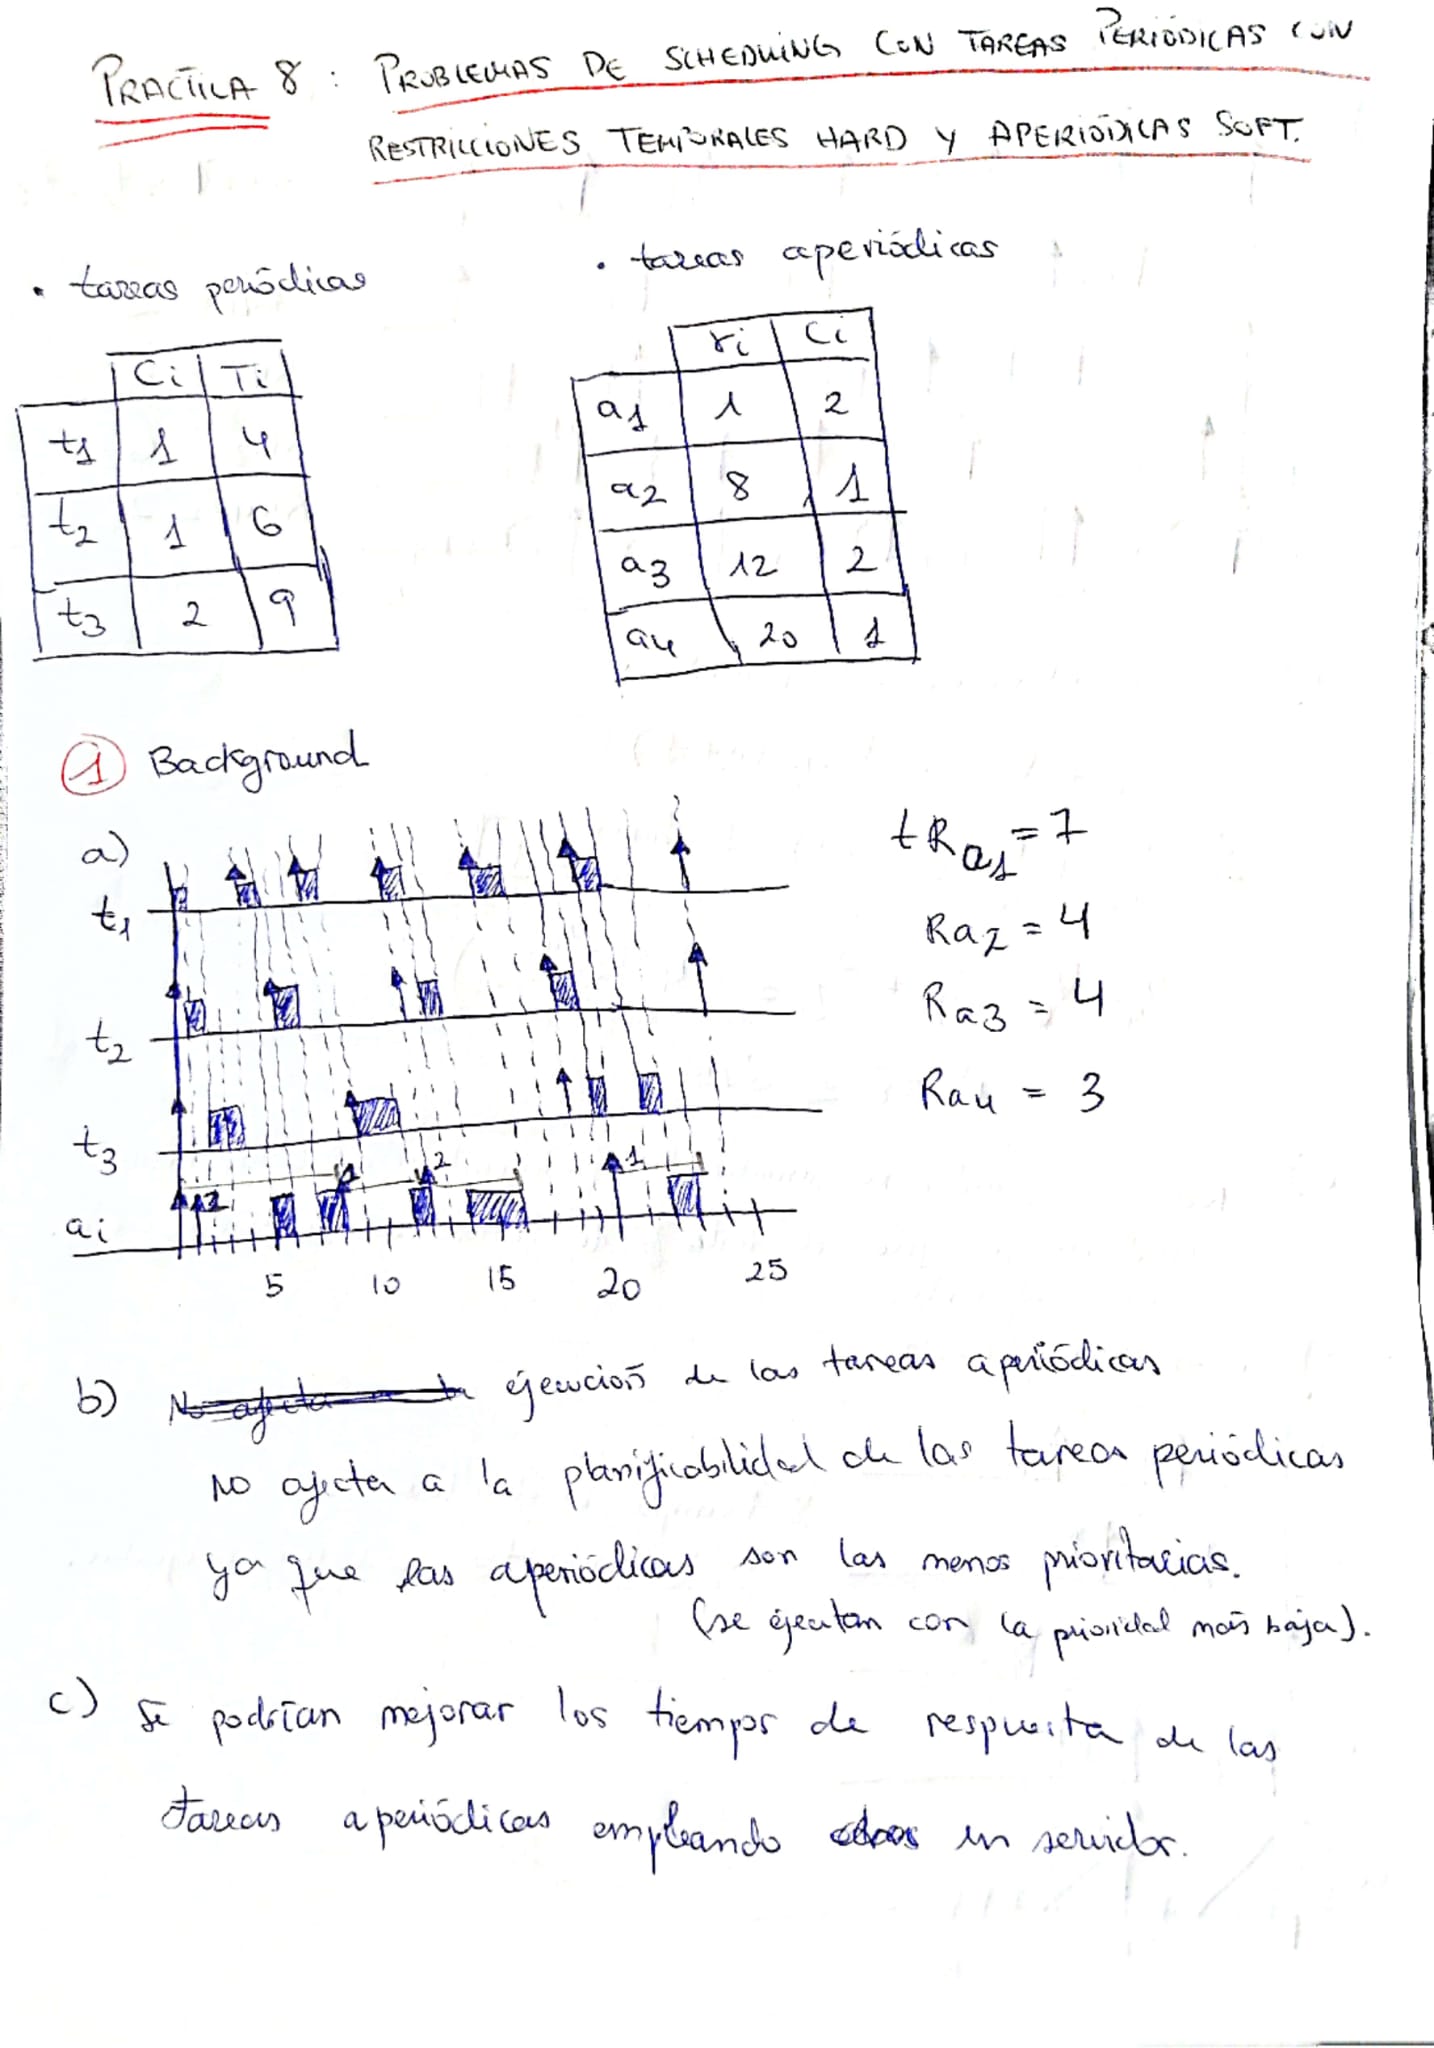 PRACTICA 8 : PROBLEMAS DE SCHEDULING CON TAREAS PERIÓDICAS CON
RESTRICCIONES TEMPORALES HARD Y APERIÓDICAS SOFT.
• tareas periódicas
• tareas aperiódicas
Ci Ti
t1 1 4
t2 1 6
t3 2 9
ri Ci
a1 1 2
a2 8 1
a3 12 2
a4 20 1
1 Background
a)
t1
t2
t3
ai
2 1 2 1
5 10 15 20 25
tRa1 = 7
Ra2 = 4
Ra3 = 4
Ra4 = 3
b) ejecución de las tareas aperiódicas
no afecta a la planificabilidad de las tareas periódicas
ya que las aperiódicas son las menos prioritarias.
(se ejecutan con la prioridad más baja).
c) Se podrían mejorar los tiempos de respuesta de las
tareas aperiódicas empleando un servidor.